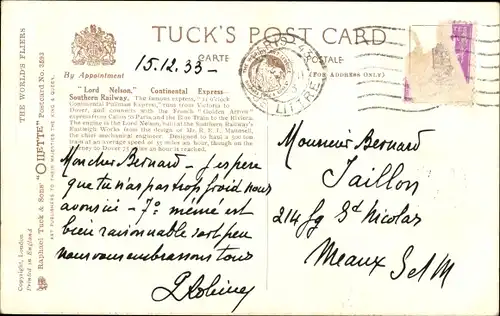 TUCK'S POST CARD
CARTE POSTALE
By Appointment
(FOR ADDRESS ONLY)
15.12.33 —
"Lord Nelson," Continental Express—
Southern Railway. The famous express,
Continental Pullman Express, runs from Victoria to
Dover, and connects with the French "Golden Arrow"
express from Calais to Paris and the Blue Train to the Riviera.
The engine is the Lord Nelson, built at the Southern Railway's
Eastleigh Works from the design of Mr. R. E. L. Maunsell,
the chief mechanical engineer. Designed to haul a 500 ton
train at an average speed of 55 miles an hour, though on the
to Dover 75 miles an hour is reached.
Mon cher Bernard — J'espere
que tu n'as pas trop froid nous
avons ici — 7° même est
bien raisonnable
nous vous embrassons tous
Monsieur Bernard
Jaillon
214 fg St Nicolas
Meaux S et M
LITTRE
THE WORLD'S FLIERS
Raphael Tuck & Sons' "OILETTE" Postcard No. 3593
ART PUBLISHERS TO THEIR MAJESTIES THE KING & QUEEN.
Copyright, London
Printed in England